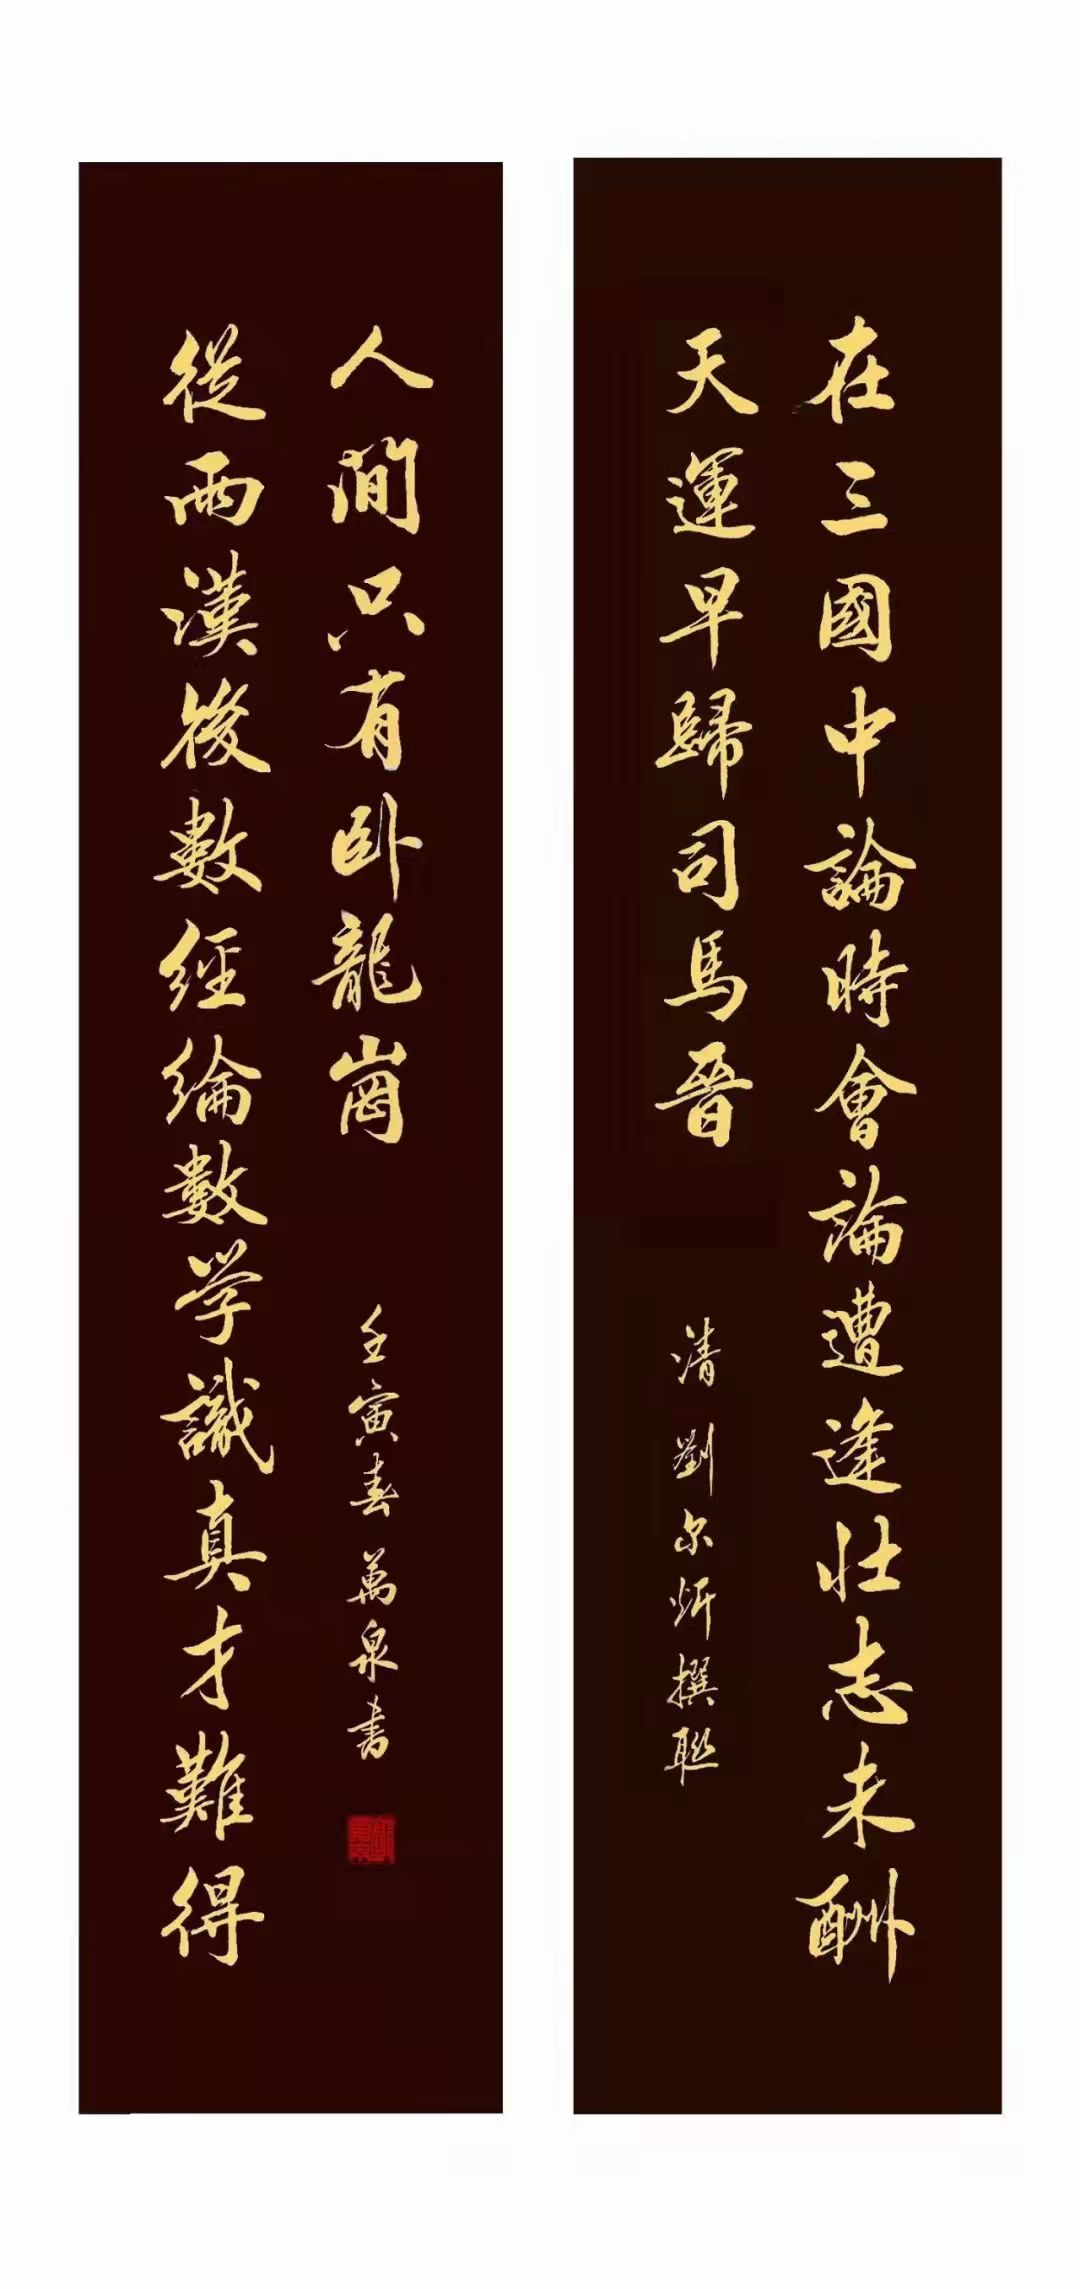 在三國中論時會論遭逢壯志未酬
天運早歸司馬晉
清 劉尔炘撰聯
從兩漢後數經綸數学識真才難得
人間只有卧龍崗
壬寅春 萬泉書